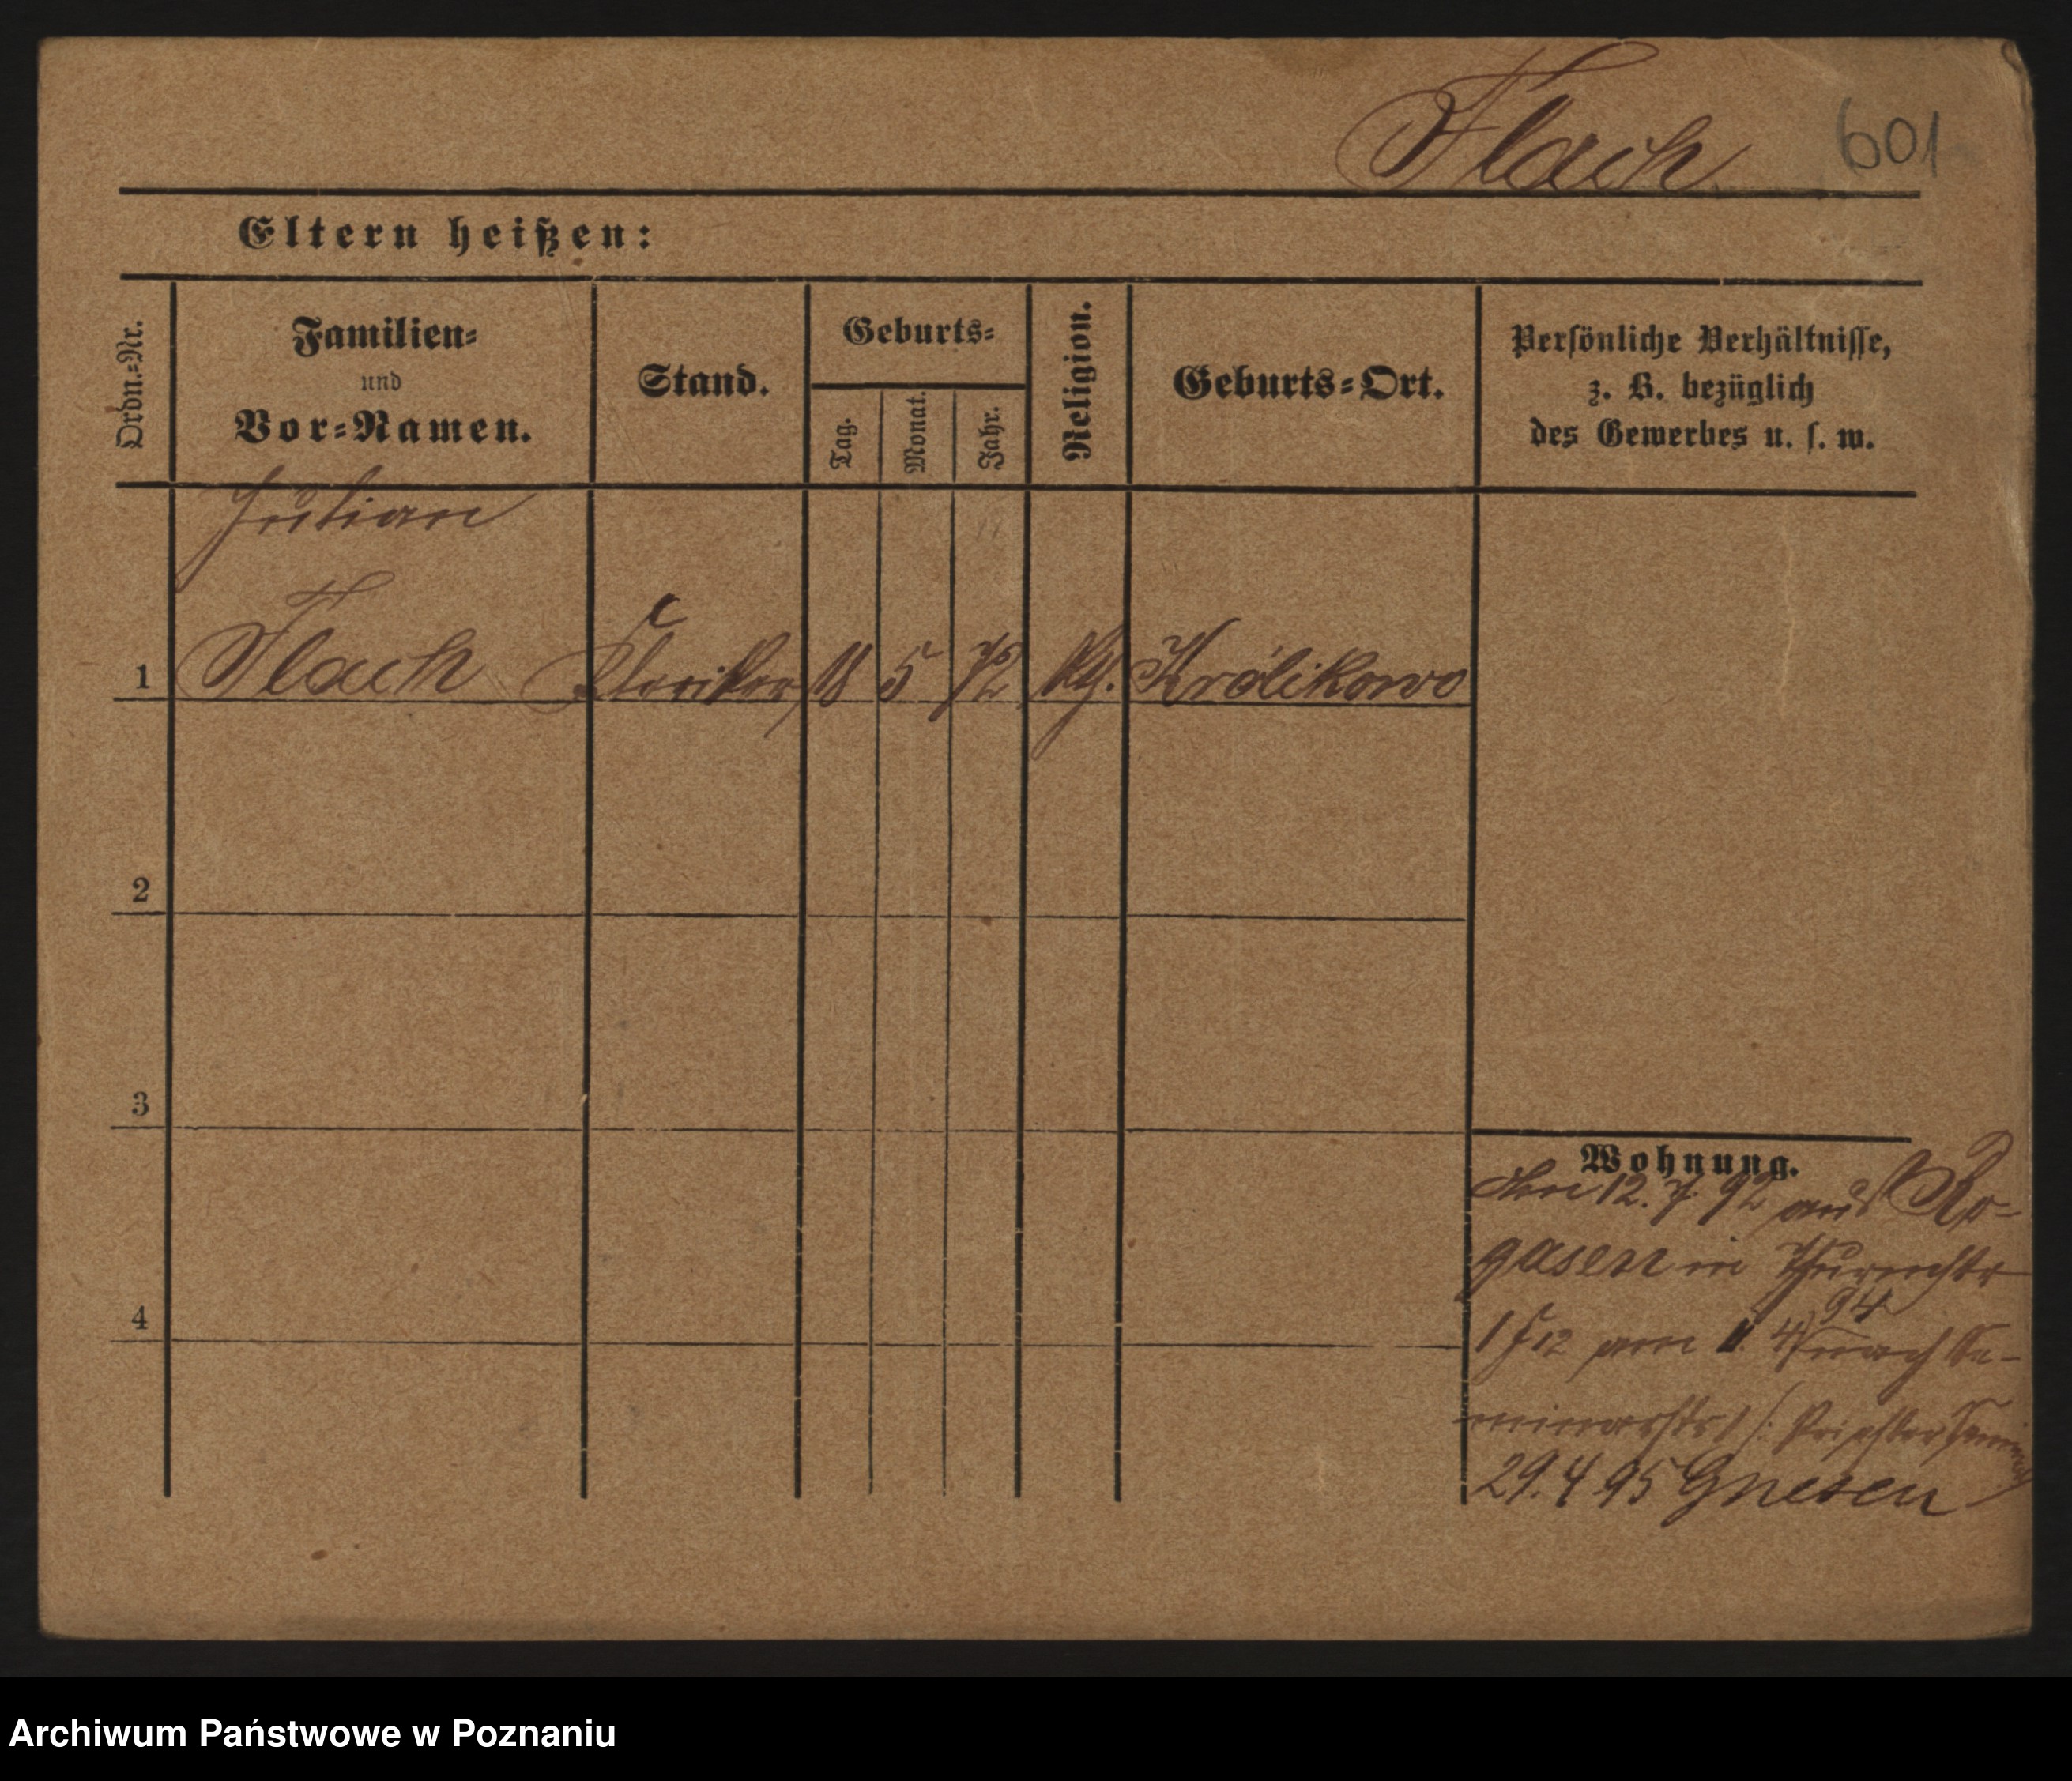 Flach 601
Eltern heißen:
Ordn.-Nr.
Familien-
und
Vor-Namen.
Stand.
Geburts-
Tag.
Monat.
Jahr.
Religion.
Geburts-Ort.
Persönliche Verhältnisse,
z. B. bezüglich
des Gewerbes u. s. w.
Julian
1 Flach Kleriker 18 5 72 Królikowo
2
3
4
Wohnung.
12. 7 92 aus Ro-
gasen in
94
am 1. 4 nach Se-
minarstr Priester
29. 4 95 Gnesen
Archiwum Państwowe w Poznaniu